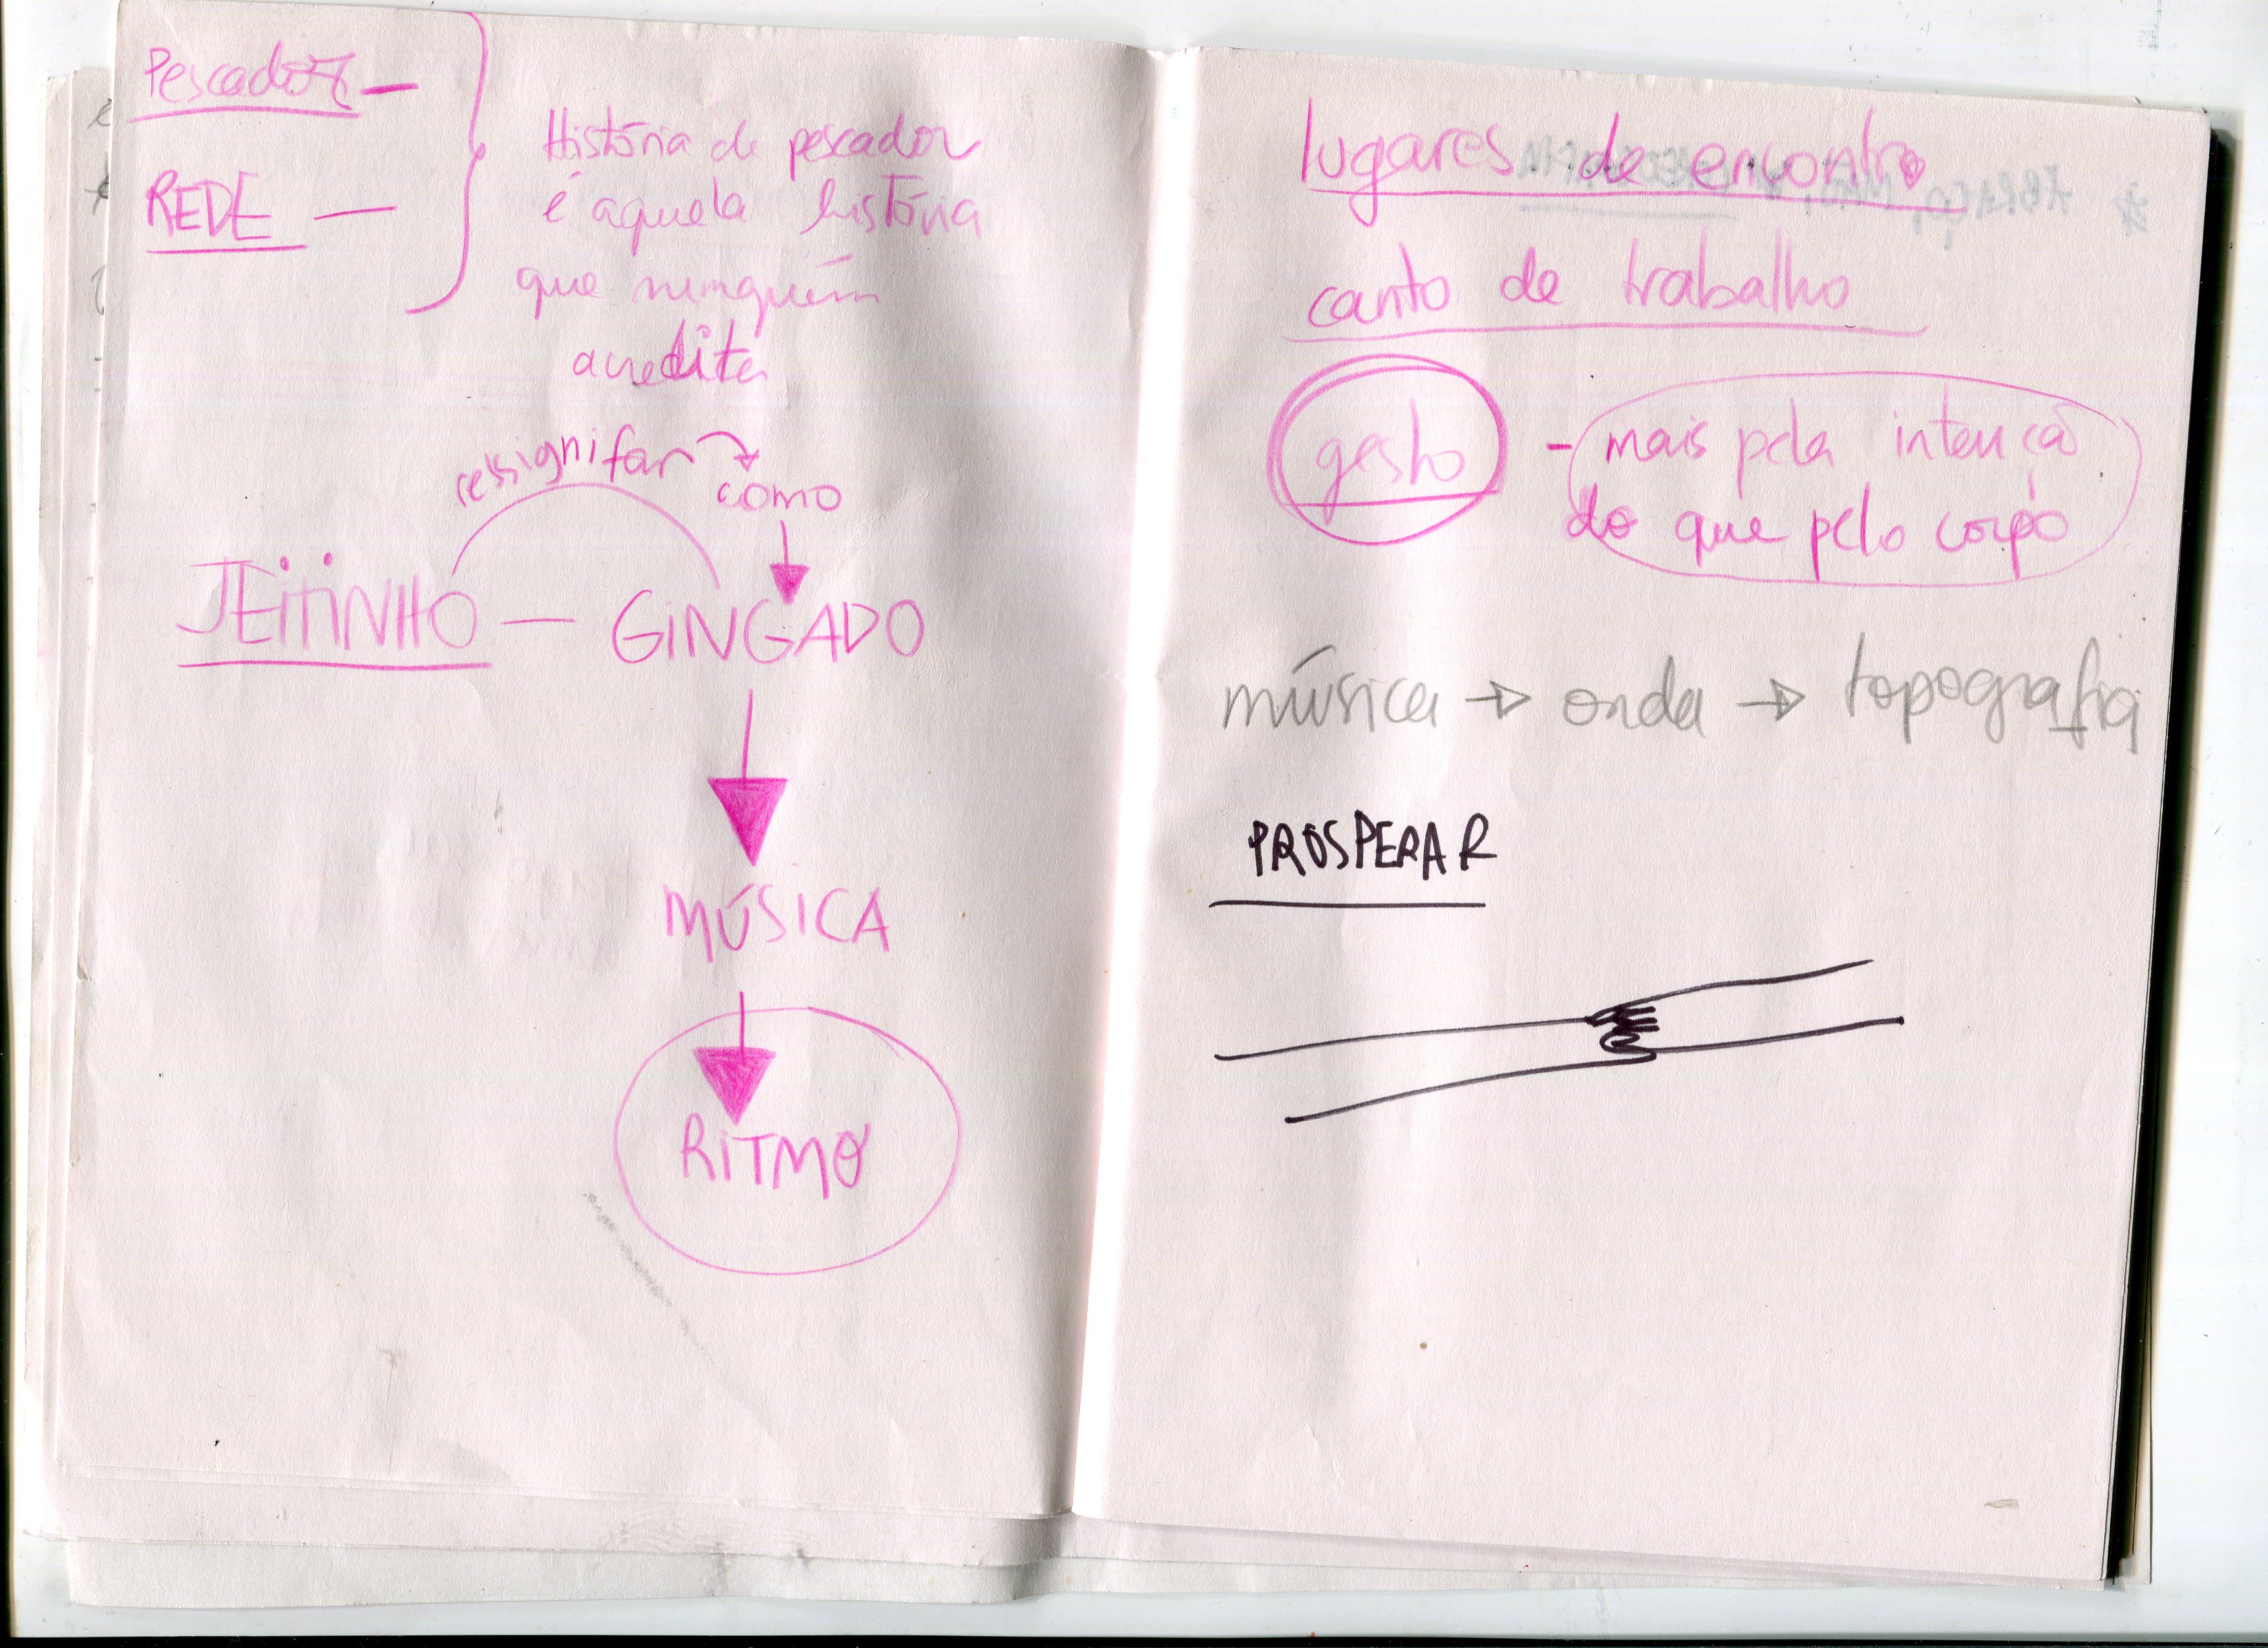 Pescador —
REDE —
História de pescador
é aquela história
que ninguém
acredita
ressignifar
como
JEiTiNHO — GiNGADO
MÚSiCA
RiTMO
lugares de encontro
canto de trabalho
gesto - mais pela intenção
do que pelo corpo
música → onda → topografia
PROSPERAR